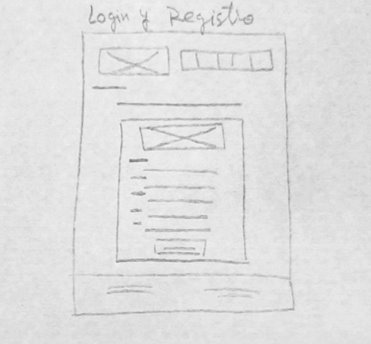 Login y Registro